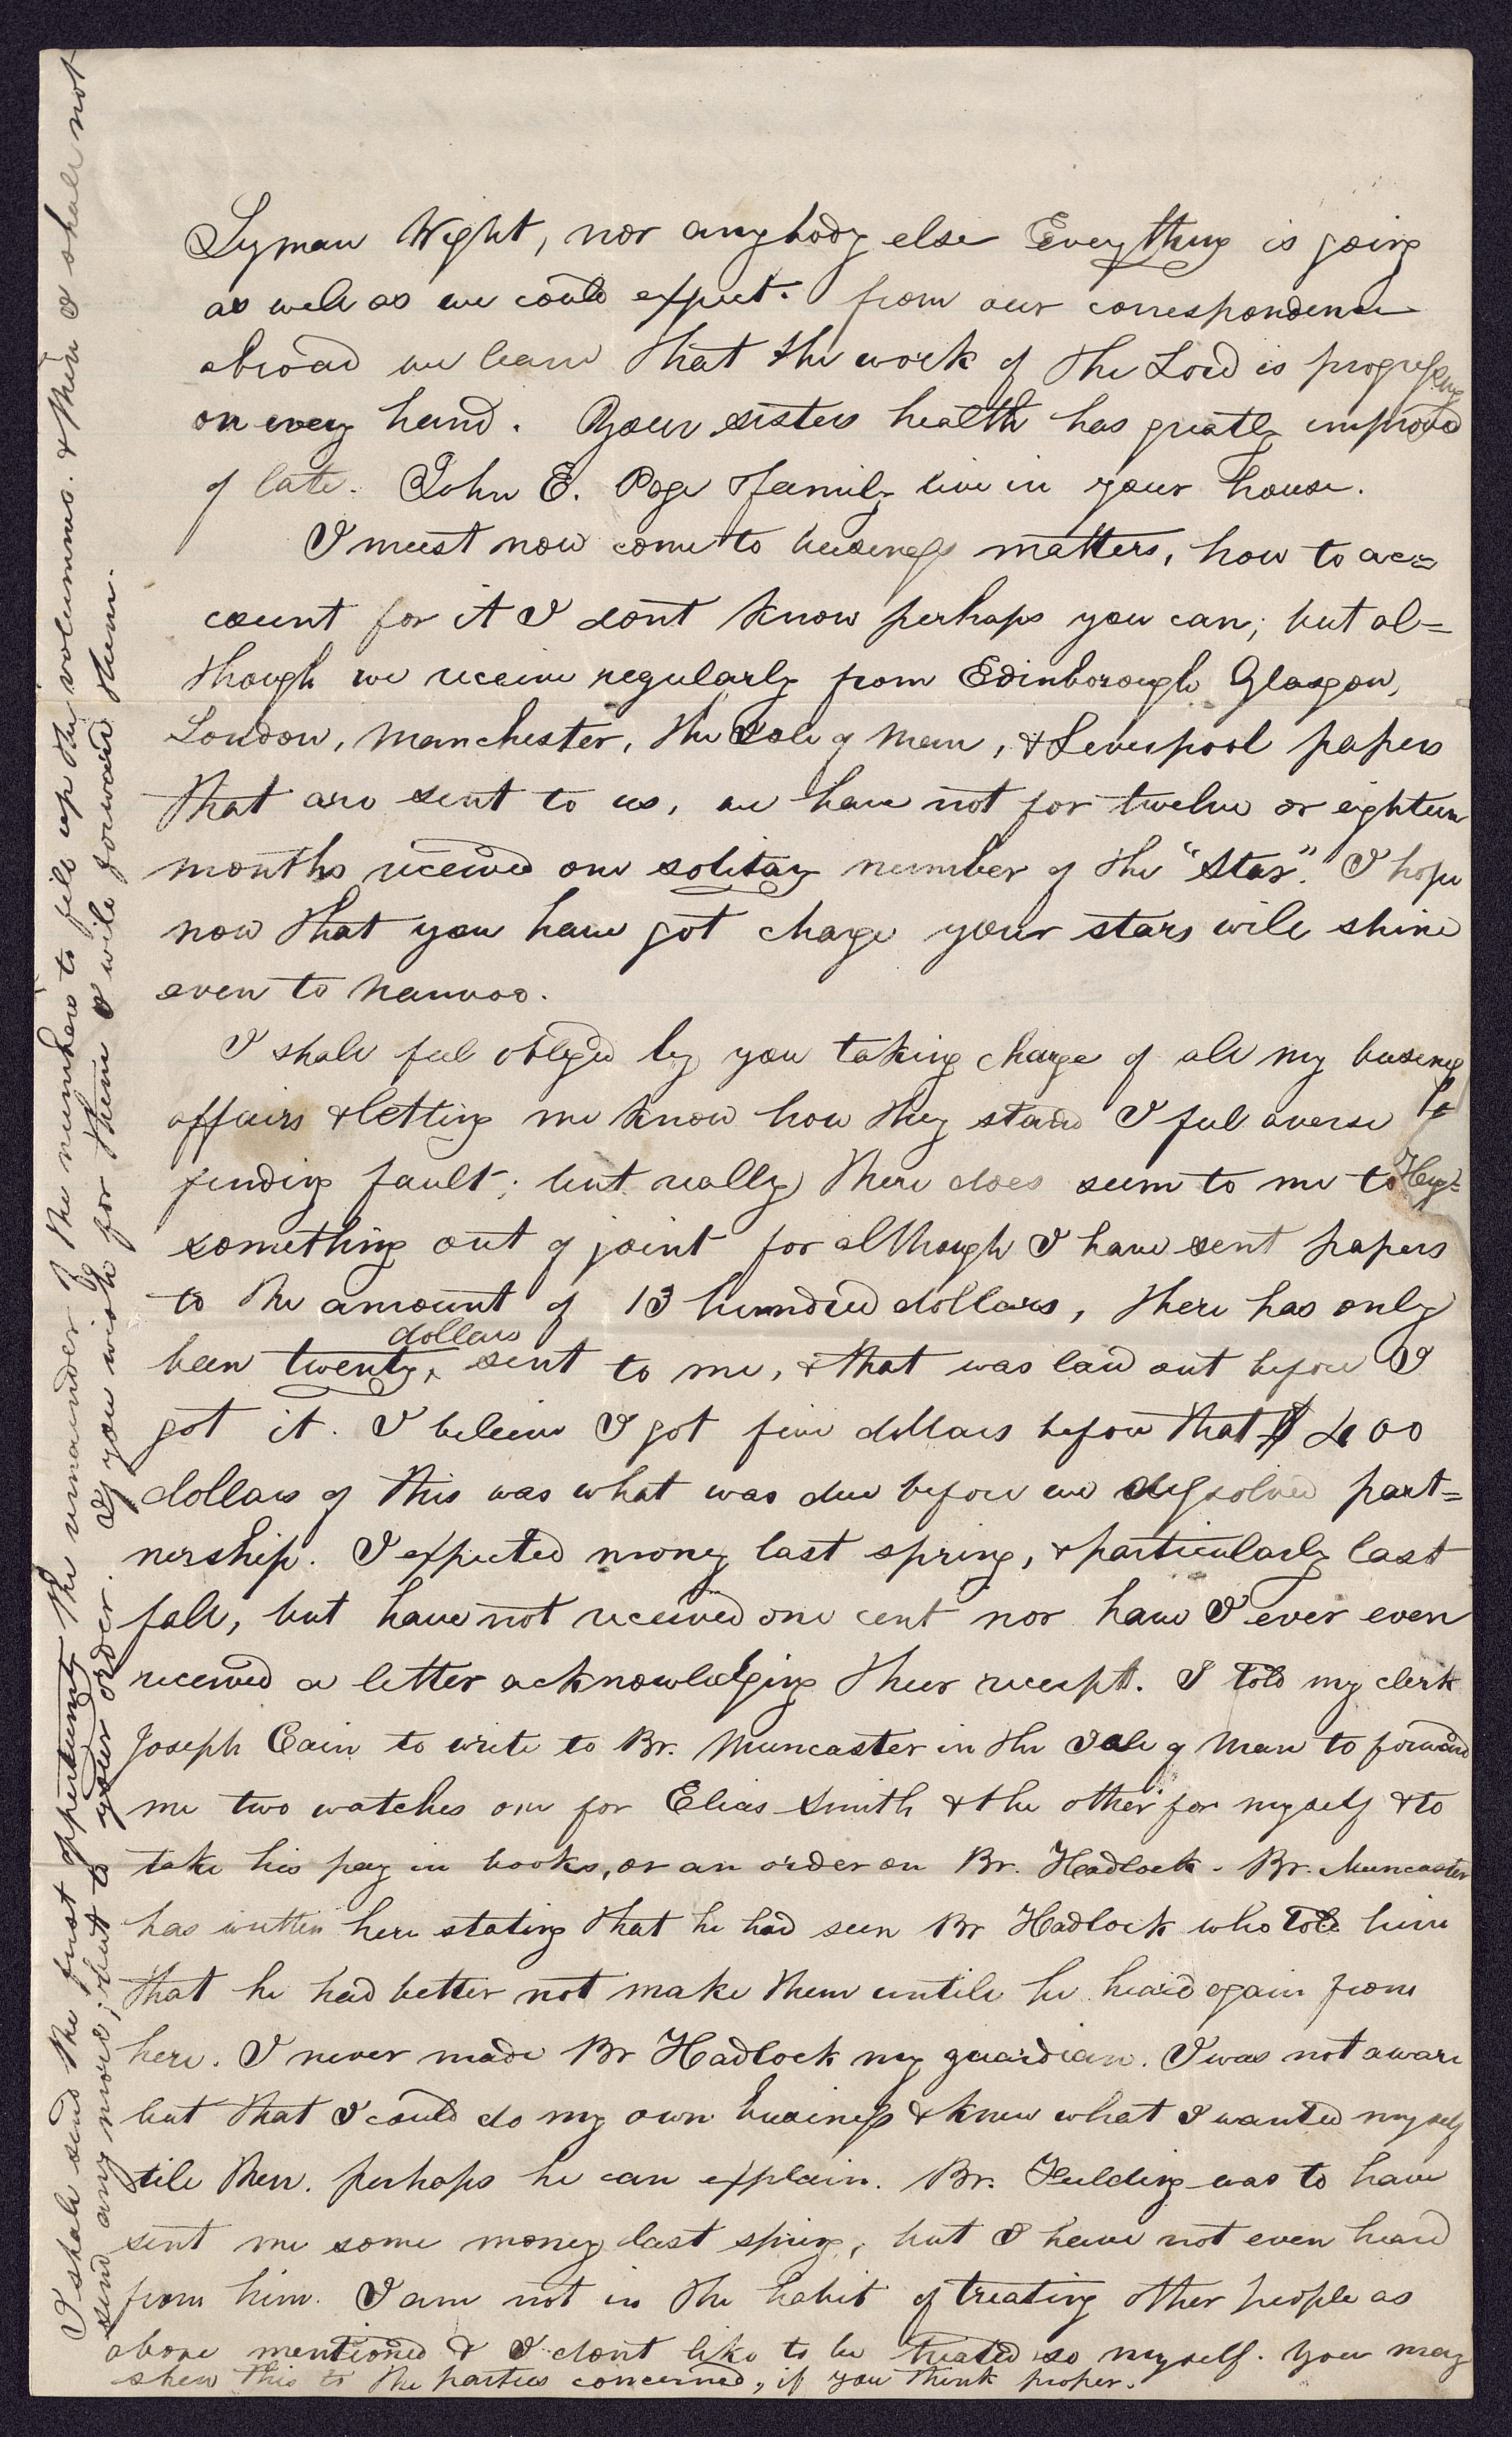 Lyman Wight, nor anybody else Everything is going
as well as we could expect. from our correspondence
abroad we learn that the work of the Lord is progressing
on every hand. Your sisters health has greatly improved
of late. John E. Page & family live in your house.
I must now come to business matters, how to ac=
count for it I dont know perhaps you can; but al=
though we receive regularly from Edinborough Glasgow,
London, Manchester, the Isle of Man, & Liverpool papers
that are sent to us, we have not for twelve or eighteen
months received one solitary number of the "Star". I hope
now that you have got charge your stars will shine
even to Nauvoo.
I shall feel obliged by you taking charge of all my business
affairs & letting me know how they stand I feel averse to
finding fault; but really there does seem to me to be
something out of joint for although I have sent papers
to the amount of 13 hundred dollars, there has only
dollars
been twenty, sent to me, & that was laid out before I
got it. I believe I got five dollars before that $400
dollars of this was what was due before we dissolved part=
nership. I expected money last spring, & particularly last
fall, but have not received one cent nor have I ever even
received a letter acknowledging their receipt. I told my clerk
Joseph Cain to write to Br. Muncaster in the Isle of Man to forward
me two watches one for Elias Smith & the other for myself & to
take his pay in books, or an order on Br. Hadlock. Br. Muncaster
has written here stating that he had seen Br Hadlock who told him
that he had better not make them untill he heard again from
here. I never made Br Hadlock my guardian. I was not aware
but that I could do my own business & knew what I wanted myself
till then. perhaps he can explain. Br. Fielding was to have
sent me some money last spring, but I have not even heard
from him. I am not in the habit of treating other people as
above mentioned & I dont like to be treated so myself. You may
shew this to the parties concerned, if you think proper.
I shall send the first oppertunity the remainder of the numbers to fill up the volumns. & then I shall not
send any more; but to your order. If you wish for them I will forward them.